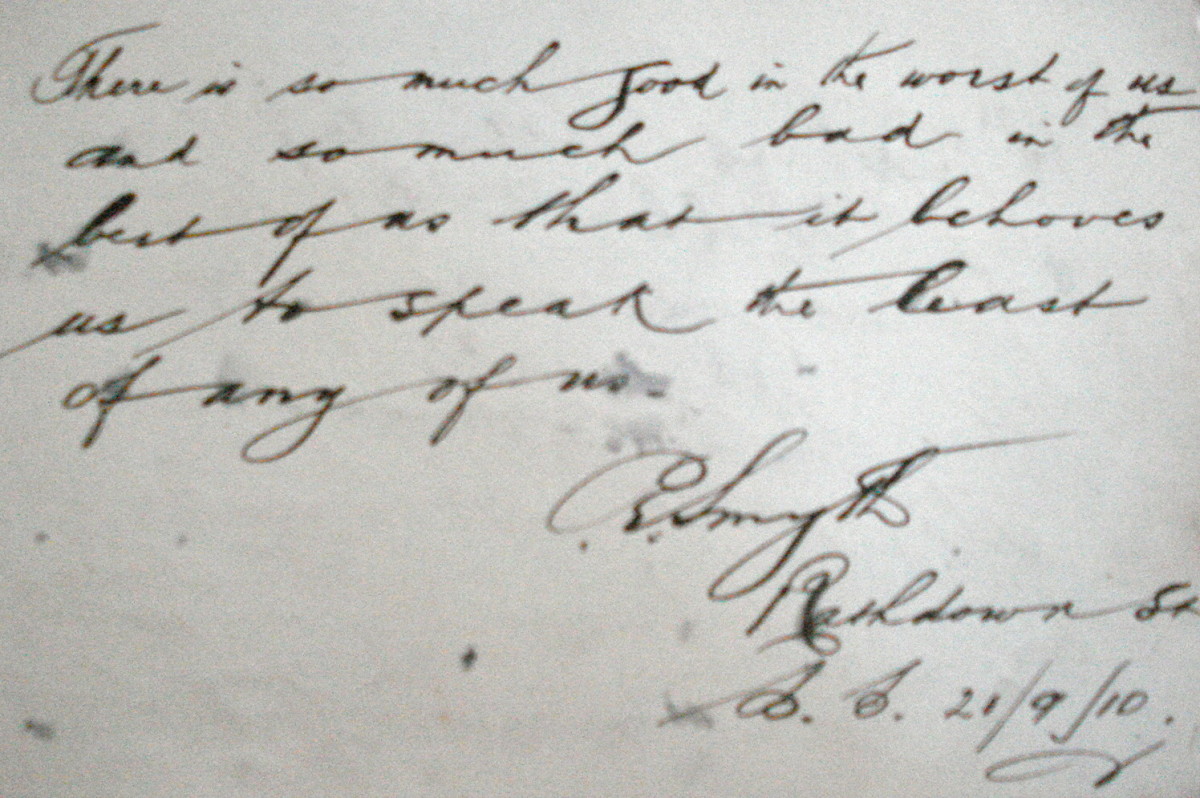 There is so much good in the worst of us
and so much bad in the
best of us that it behoves
us to speak the least
of any of us.
E. Smyth
Rathdown St
21/9/10.